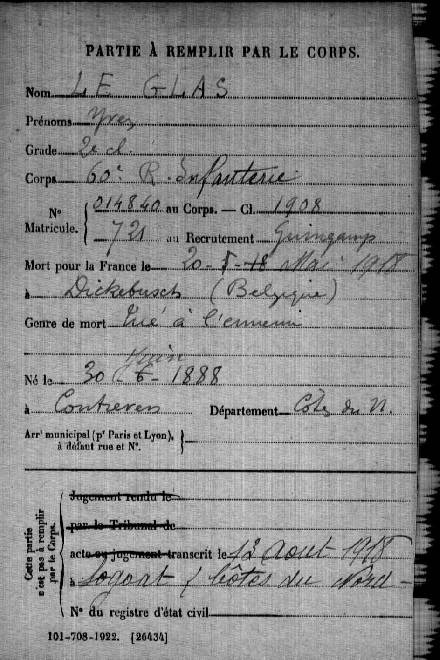 PARTIE À REMPLIR PAR LE CORPS.
Nom LE GLAS
Prénoms Yves
Grade 2e cl.
Corps 60e R. Infanterie
Nº 014840 au Corps. — Cl. 1908
Matricule. 721 au Recrutement Guingamp
Mort pour la France le 20-5-18 Mai 1918
à Dickebusch (Belgique)
Genre de mort Tué à l'ennemi
Juin
Né le 30-6-1888
à Département Côtes du N.
Arrt municipal (pr Paris et Lyon),
à défaut rue et Nº.
Cette partie
n'est pas à remplir
par le Corps.
Jugement rendu le
par le Tribunal de
acte ou jugement transcrit le 12 Aout 1918
à (Côtes du Nord-
Nº du registre d'état civil
101-708-1922. [26434]